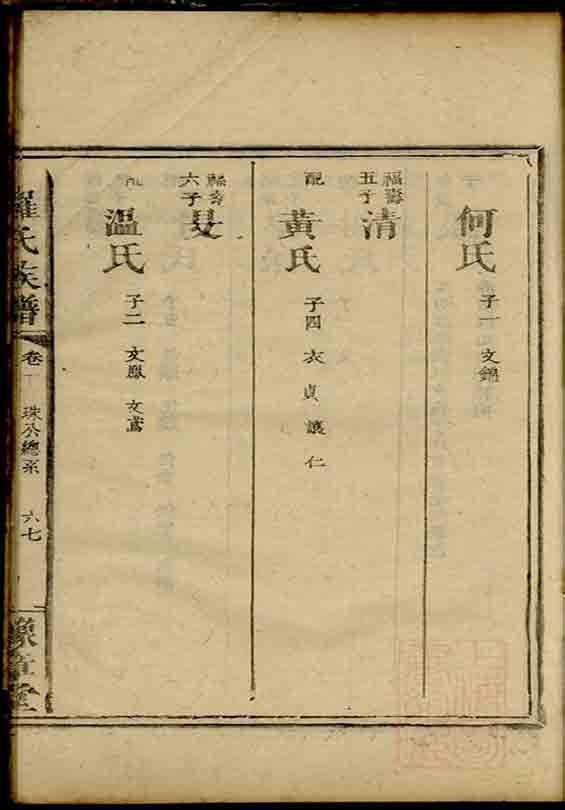 何氏 子一 文錦
福壽五子 清
配 黄氏 子四 衣 貞 讓 仁
福壽六子
配 溫氏 子二 文鳳 文鳶
羅氏族譜 卷 珠公總系 六七 豫章堂